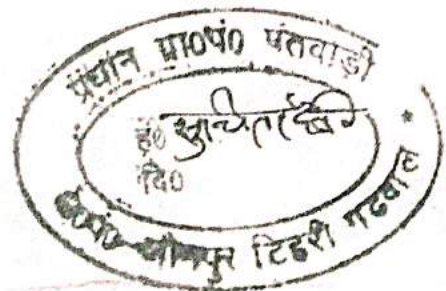 प्रधान ग्रा0पं0 पंतवाड़ी
ह0
दि0
जौनपुर टिहरी गढवाल *